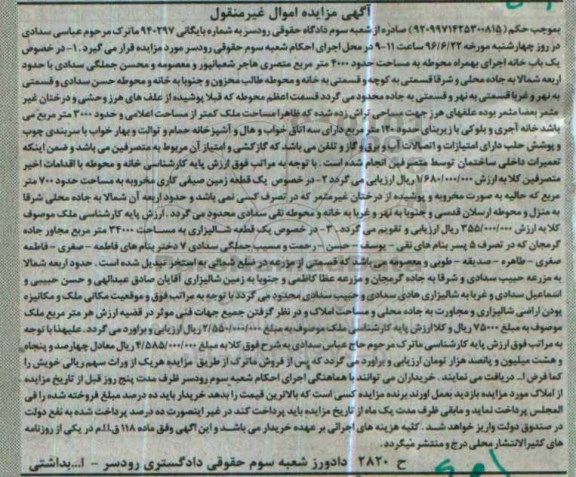 آگهی مزایده اموال غیرمنقول
بموجب حکم (۹۲۰۹۹۷۱۴۲۵۳۰۰۸۱۵) صادره از شعبه سوم دادگاه حقوقی رودسر به شماره بایگانی ۹۴۰۲۹۷ ماترک مرحوم عباسی سدادی
در روز چهارشنبه مورخه ۹۶/۶/۲۲ ساعت ۱۱-۹ در محل اجرای احکام شعبه سوم حقوقی رودسر مورد مزایده قرار می گیرد. ۱- در خصوص
یک باب خانه اجرای بهمراه محوطه به مساحت حدود ۴۰۰۰ متر مربع متصری هاجر شعبانپور و معصومه و محسن جملگی سدادی با حدود
اربعه شمالا به جاده محلی و شرقا قسمتی به کوچه و قسمتی به خانه و محوطه طالب محزون و جنوبا به خانه و محوطه حسن سدادی و قسمتی
به نهر و غربا قسمتی به نهر و قسمتی به جاده محدود می گردد قسمت اعظم محوطه که قبلا پوشیده از علف های هرز وحشی و درختان غیر
مثمر بعضا مثمر بوده علفهای هرز جهت مساحی تراش زده شده که ظاهرا مساحت ملک کمتر از مساحت اعلامی و حدود ۳۰۰۰ متر مربع می
باشد خانه آجری و بلوکی با زیربنای حدود ۱۲۰ متر مربع دارای سه اتاق خواب و هال و آشپزخانه حمام و توالت و بهار خواب با سربندی چوب
و پوشش حلب دارای امتیازات و اتصالات آب و برق و گاز و تلفن می باشد که گازکشی و امتیاز آن مربوط به متصرفین می باشد و ضمن اینکه
تعمیرات داخلی ساختمان توسط متصرفین انجام شده است. با توجه به مراتب فوق ارزش پایه کارشناسی خانه و محوطه با اقدامات اخیر
متصرفین کلا به ارزش ۱/۶۸۰/۰۰۰/۰۰۰ ریال ارزیابی می گردد ۲- در خصوص یک قطعه زمین صیفی کاری مخروبه به مساحت حدود ۷۰۰ متر
مربع که حالیه به صورت مخروبه و پوشیده از درختان غیرمثمر که در تصرف کسی نمی باشد و حدود اربعه آن شمالا به جاده محلی شرقا
به منزل و محوطه ارسلان قدسی و جنوبا به نهر و غربا به خانه و محوطه نقی سدادی محدود می گردد. ارزش پایه کارشناسی ملک موصوف
کلا به ارزش ۳۵۵/۰۰۰/۰۰۰ ریال ارزیابی و تقویم می گردد. ۳- در خصوص یک قطعه شالیزاری به مساحت ۳۴۰۰۰ متر مربع مجاور جاده
گرمجان که در تصرف ۵ پسر بنام های نقی - یوسف - حسن - رحمت و مسیب جملگی سدادی ۷ دختر بنام های فاطمه - صغری - فاطمه
صغری - طاهره - صدیقه - طوبی و معصومه می باشد که قسمتی از مزرعه در ضلع شمالی به استخر تبدیل شده است. حدود اربعه شمالا
به مزرعه حبیب سدادی و شرقا به جاده گرمجان و مزرعه عطا کاظمی و جنوبا به زمین شالیزاری آقایان صادق عبدالهی و حسن حبیبی و
اسماعیل سدادی و غربا به شالیزاری هادی سدادی و حبیب سدادی محدود می گردد با توجه به مراتب فوق و موقعیت مکانی ملک و مکانیزه
بودن اراضی شالیزاری و مجاورت به جاده محلی و مساحت املاک و در نظر گرفتن جمیع جهات فنی موثر در قضیه ارزش هر متر مربع ملک
موصوف به مبلغ ۷۵۰۰۰ ریال و کلا ارزش پایه کارشناسی ملک موصوف به مبلغ ۲/۵۵۰/۰۰۰/۰۰۰ ریال ارزیابی و براورد می گردد. علیهذا با توجه
به مراتب فوق ارزش پایه کارشناسی ماترک مرحوم حاج عباس سدادی به شرح فوق کلا به مبلغ ۴/۵۸۵/۰۰۰/۰۰۰ ریال معادل چهارصد و پنجاه
و هشت میلیون و پانصد هزار تومان ارزیابی و براورد می گردد که پس از فروش ماترک از طریق مزایده هریک از وراث سهم ریالی خویش را
کما فرض ا... دریافت می نمایند. خریداران می توانند با هماهنگی اجرای احکام شعبه سوم رودسر ظرف مدت پنج روز قبل از تاریخ مزایده
از املاک مورد مزایده بازدید بعمل آورند برنده مزایده کسی است که بالاترین قیمت را بدهد خریدار باید ده درصد مبلغ فروخته شده را فی
المجلس پرداخت نماید و مابقی ظرف مدت یک ماه از تاریخ مزایده باید پرداخت کند در غیر اینصورت ده درصد پرداخت شده به نفع دولت
در صندوق دولت واریز خواهد شد. کلیه هزینه های اجرائی بر عهده خریدار می باشد و این آگهی وفق ماده ۱۱۸ ق.ا.م در یکی از روزنامه
های کثیرالانتشار محلی درج و منتشر میگردد.
ح ۲۸۲۰ دادورز شعبه سوم حقوقی دادگستری رودسر - ا...بداشتی